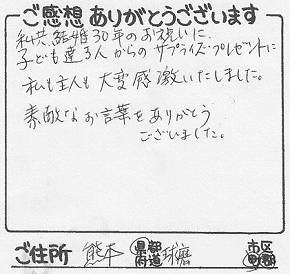 ご感想ありがとうございます
私共結婚30年のお祝いに、
子ども達3人からのサプライズプレゼントに
私も主人も大変感激いたしました。
素敵なお言葉をありがとう
ございました。
ご住所 熊本 都道府県 球磨 市区町郡